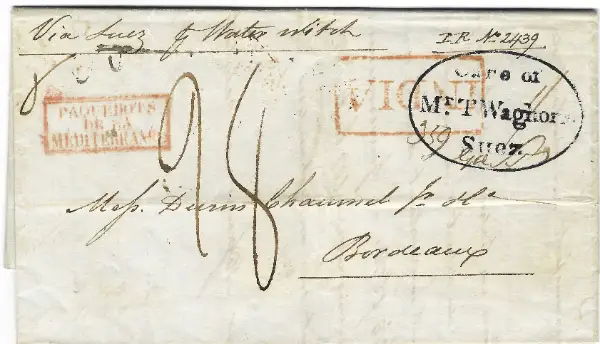 Via Suez p Water witch
I R No. 2439
PAQUEBOTS
DE LA
MEDITERRANÉE
INDIA
Care of
Mr. T Waghorn
Suez
28
Mess. Chaumel
Bordeaux